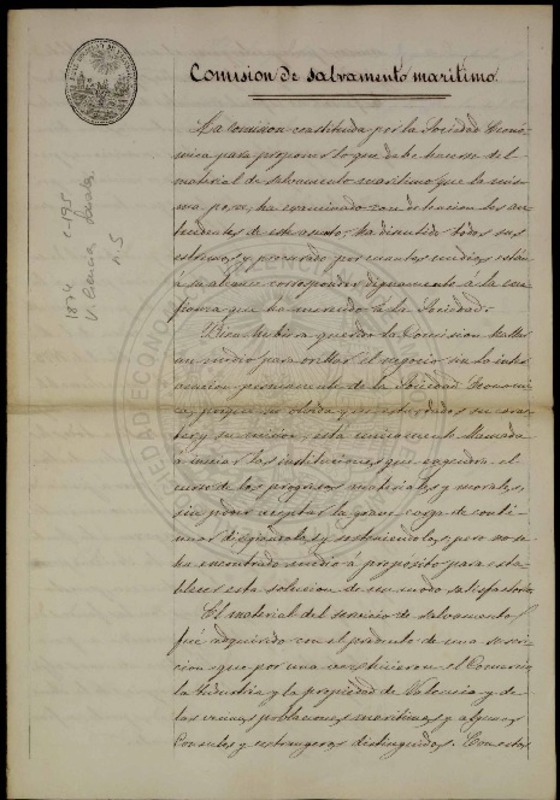 Comision de salvamento maritimo.
La Comision constituida por la Sociedad Econó-
mica para proponer lo que debe hacerse del
material de salvamento maritimo que la mis-
ma posee, ha examinado con detencion los an-
tecedentes de este asunto: ha discutido todos sus
estremos y procurado por cuantos medios están
á su alcance corresponder dignamente á la con-
fianza que ha merecido á la Sociedad.
Bien hubiera querido la Comision hallar
un medio para orillar el negocio sin la inter-
vencion permanente de la Sociedad Economi-
ca, porque no olvida que esta, dados su carac-
ter y su mision, está unicamente llamada
á iniciar las instituciones que exige el
curso de los progresos materiales y morales,
sin poder aceptar la grave carga de conti-
nuar y sosteniendolas, pero no se
ha encontrado medio á propósito para esta-
blecer esta solucion de un modo satisfactorio.
El material del servicio de salvamento
fué adquirido con el producto de una suscri-
cion que por una vez hicieron el Comercio,
la Industria y la propiedad de Valencia y de
las vecinas poblaciones maritimas y algunos
Consules y estrangeros distinguidos. Con estos
1874
C-195
V. Ciencias
n. 5